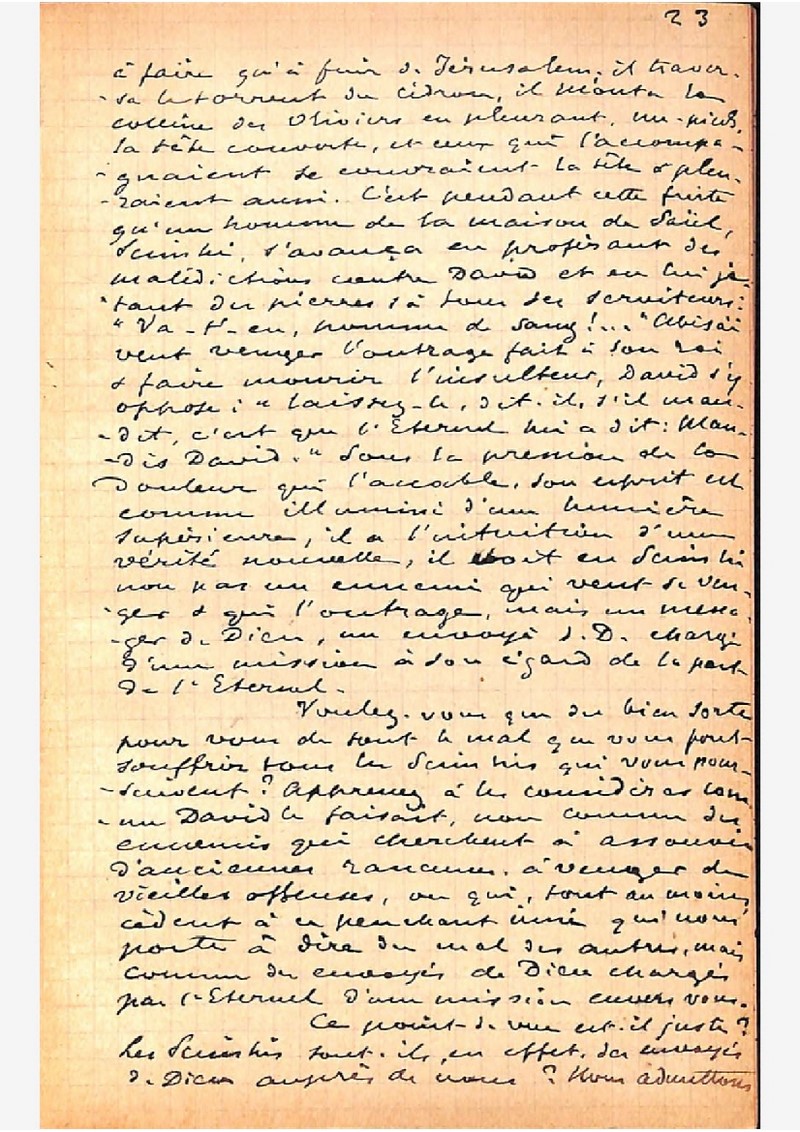 23
à faire qu'à fuir de Jérusalem; il traver-
-sa le torrent du Cédron, il monta la
colline des Oliviers en pleurant, nu-pieds,
la tête couverte, et ceux qui l'accompa-
-gnaient se couvraient la tête & pleu-
-raient aussi. C'est pendant cette fuite
qu'un homme de la maison de Saül,
Scimhi, s'avança en proférant des
malédictions contre David et en lui je-
-tant des pierres & à tous ses serviteurs:
"Va-t'-en, homme de sang!..." Abisaï
veut venger l'outrage fait à son roi
& faire mourir l'insulteur, David s'y
oppose: "Laissez-le, dit-il, s'il mau-
-dit, c'est que l'Éternel lui a dit: Mau-
-dis David." Sous la pression de la
douleur qui l'accable, son esprit est
comme illuminé d'une lumière
supérieure, il a l'intuition d'une
vérité nouvelle, il voit en Scimhi
non pas un ennemi qui veut se ven-
-ger & qui l'outrage, mais un messa-
-ger de Dieu, un envoyé d. D. chargé
d'une mission à son égard de la part
de l'Eternel.
Voulez-vous que du bien sorte
pour vous de tout le mal que vous font
souffrir tous les Scimhis qui vous pour-
-suivent? Apprenez à les considérer com-
-me David le faisait, non comme des
ennemis qui cherchent à assouvir
d'anciennes rancunes, à venger de
vieilles offenses, ou qui, tout au moins
cèdent à ce penchant inné qui nous
porte à dire du mal des autres, mais
comme des envoyés de Dieu chargés
par l'Eternel d'une mission envers vous.
Ce point de vue est-il juste?
Les Scimhis sont-ils, en effet, des envoyés
de Dieu auprès de nous? Nous admettons